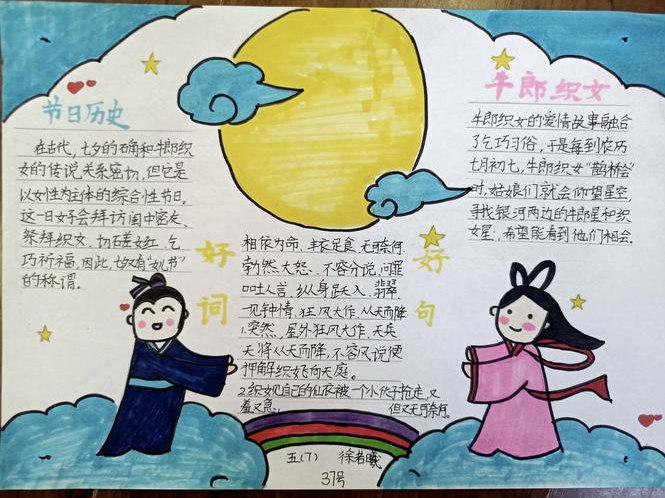 节日历史
在古代,七夕的确和牛郎织
女的传说关系密切,但它是
以女性为主体的综合性节日。
这一日女子会拜访闺中密友、
祭拜织女、切磋女红、乞
巧祈福,因此,七夕有“女儿节”
的称谓。
好词
相依为命、丰衣足食、无可奈何
勃然大怒、不容分说、
口吐人言、纵身跃入、翡翠、
一见钟情、狂风大作、从天而降
好句
1.突然,屋外狂风大作,天兵
天将从天而降,不容分说便
押解织女飞向天庭。
2.织女见自己的仙衣被一个小伙子抢走,又
羞又急, 但又无可奈何。
牛郎织女
牛郎织女的爱情故事融合
了乞巧习俗,于是每到农历
七月初七,牛郎织女“鹊桥会”
时,姑娘们就会仰望星空,
寻找银河两边的牛郎星和织
女星,希望能看到他们相会。
五(7) 徐若曦
37号